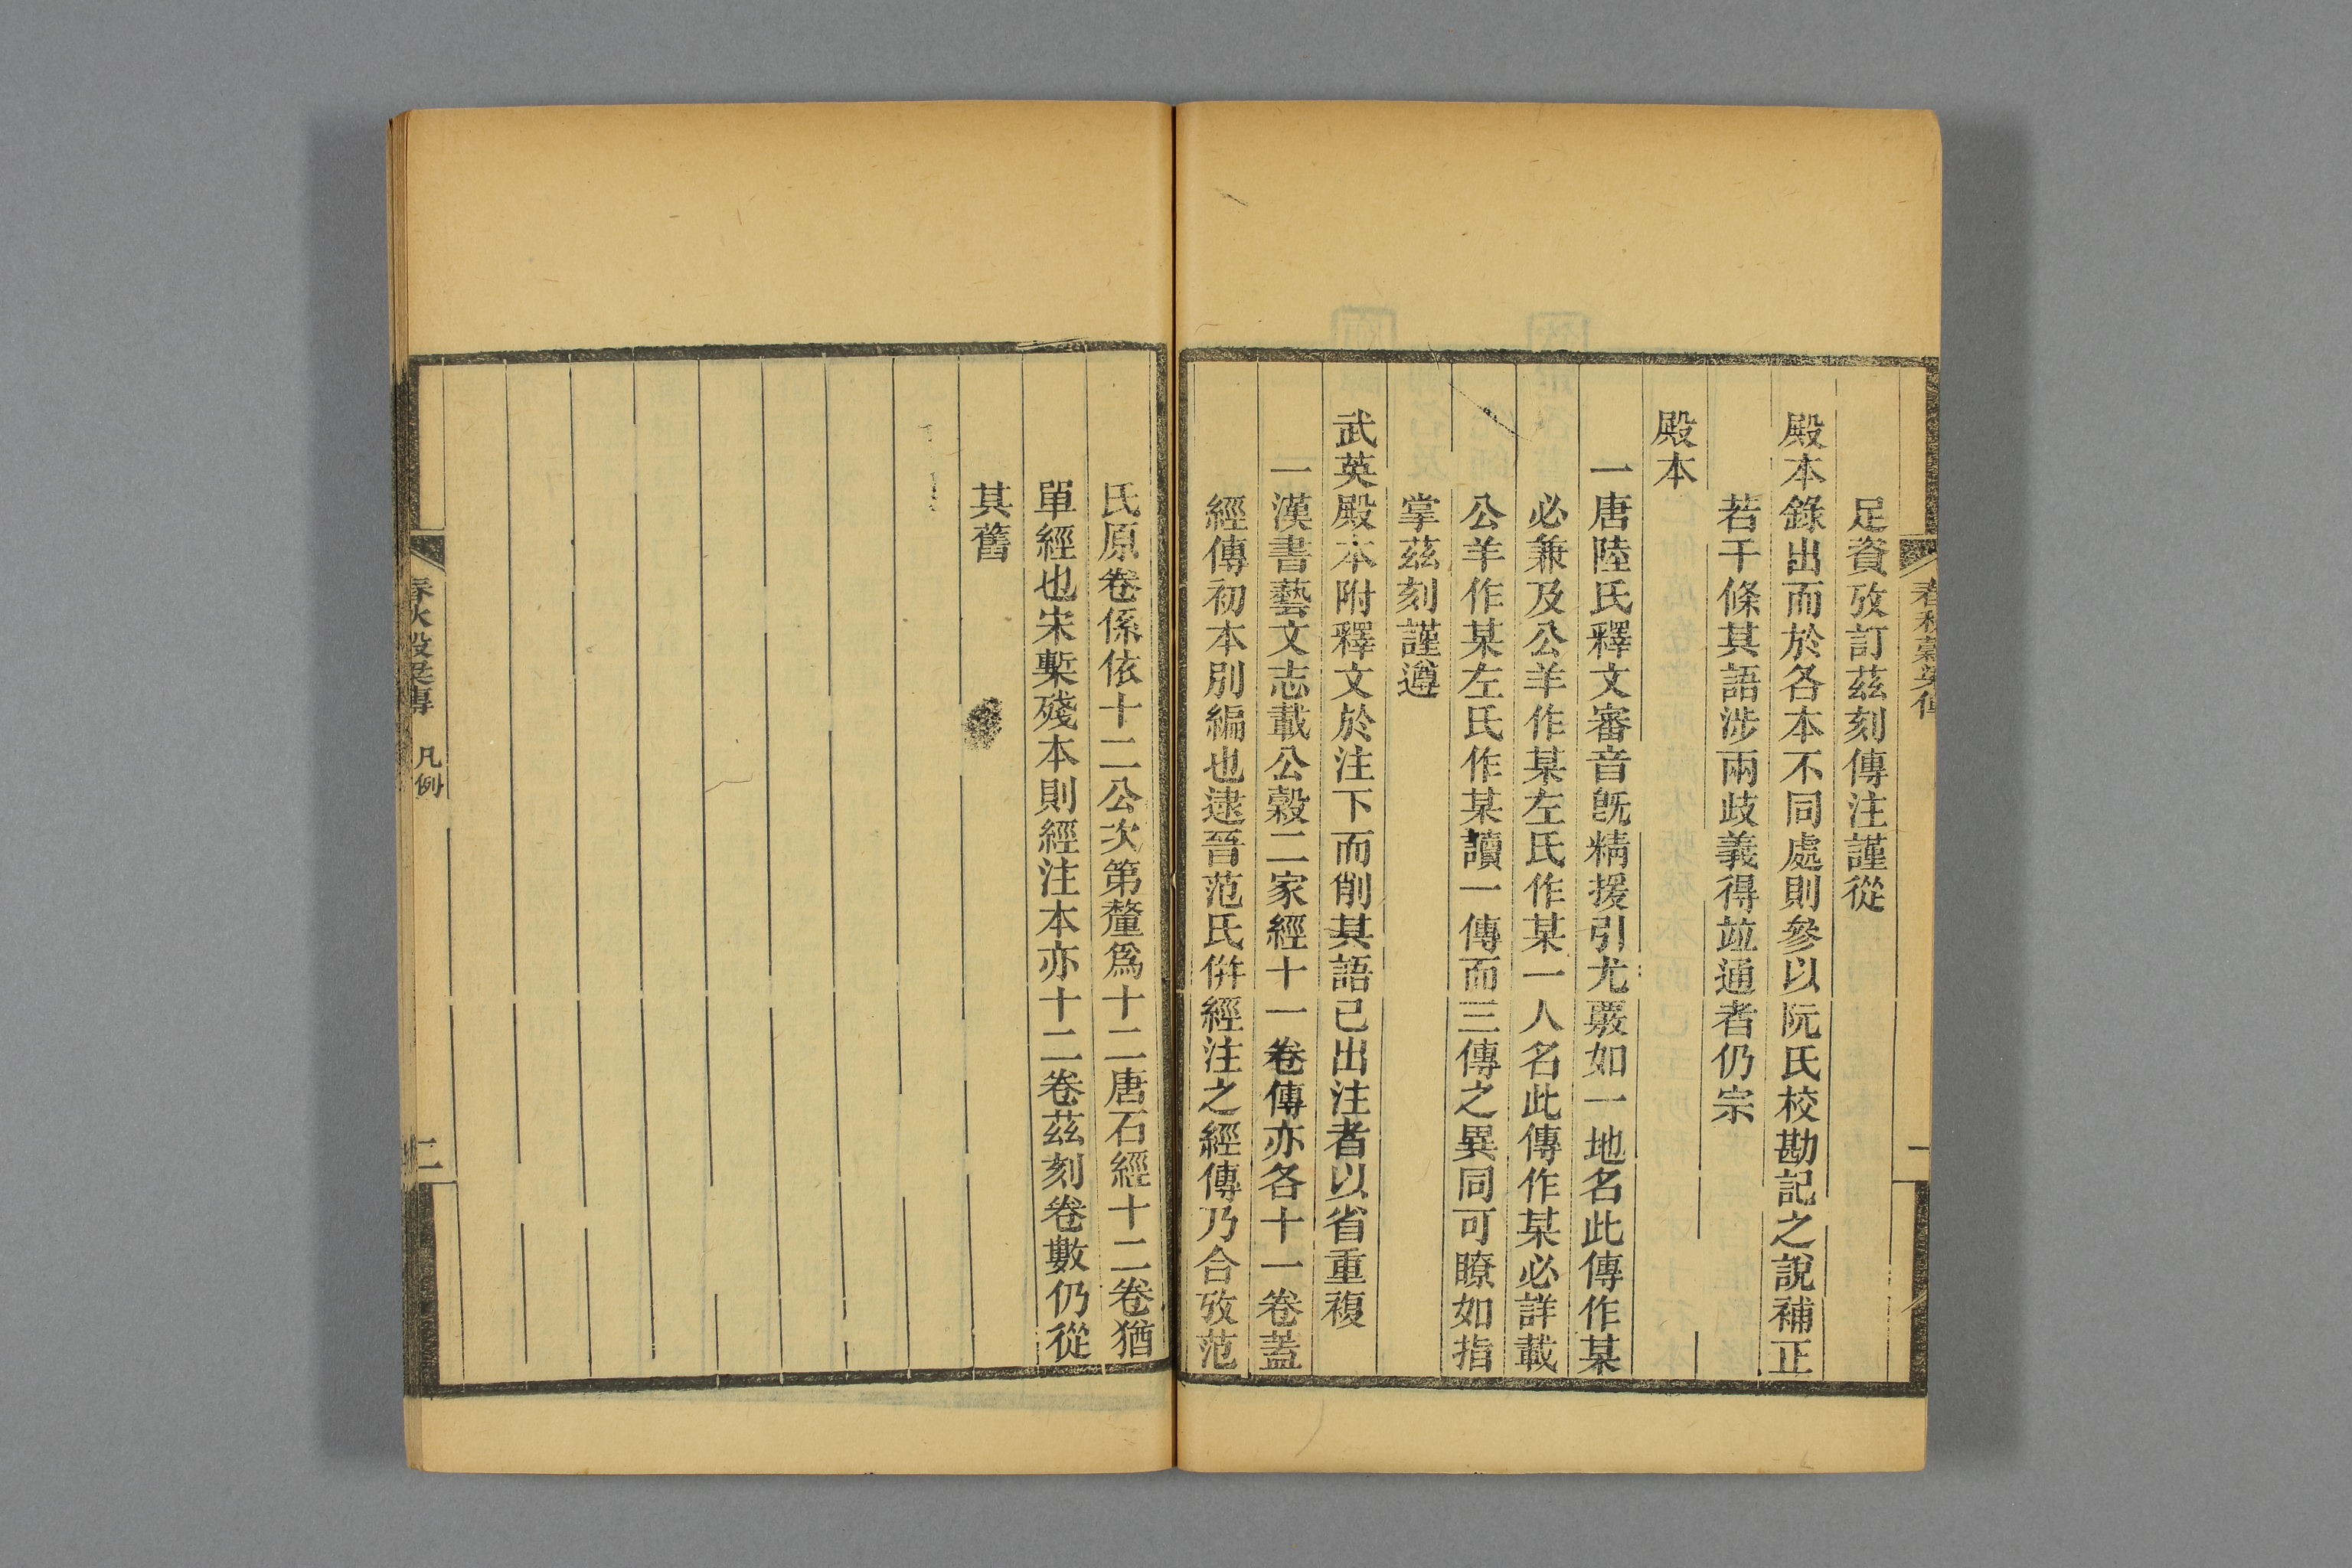 春秋穀梁傳
一
足資攷訂茲刻傳注謹從
殿本錄出而於各本不同處則參以阮氏校勘記之說補正
若干條其語涉兩歧義得竝通者仍宗
殿本
一唐陸氏釋文審音旣精援引尤覈如一地名此傳作某
必兼及公羊作某左氏作某一人名此傳作某必詳載
公羊作某左氏作某讀一傳而三傳之異同可瞭如指
掌茲刻謹遵
武英殿本附釋文於注下而削其語已出注者以省重複
一漢書藝文志載公穀二家經十一卷傳亦各十一卷蓋
經傳初本別編也逮晉范氏併經注之經傳乃合攷范
氏原卷係依十二公次第釐爲十二唐石經十二卷猶
單經也宋槧殘本則經注本亦十二卷茲刻卷數仍從
其舊
春秋穀梁傳 凡例
二